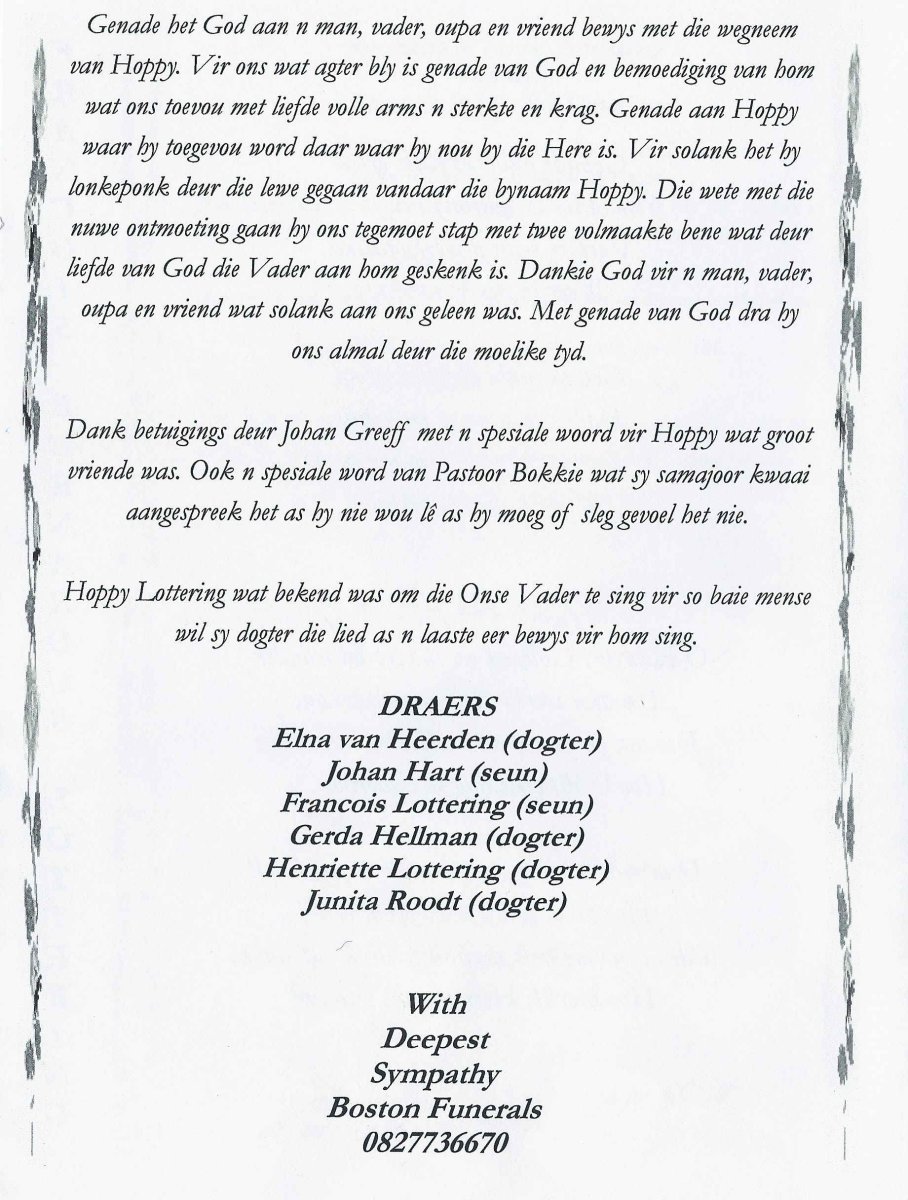 Genade het God aan n man, vader, oupa en vriend bewys met die wegneem
van Hoppy. Vir ons wat agter bly is genade van God en bemoediging van hom
wat ons toevou met liefde volle arms n sterkte en krag. Genade aan Hoppy
waar hy toegevou word daar waar hy nou by die Here is. Vir solank het hy
lonkeponk deur die lewe gegaan vandaar die bynaam Hoppy. Die wete met die
nuwe ontmoeting gaan hy ons tegemoet stap met twee volmaakte bene wat deur
liefde van God die Vader aan hom geskenk is. Dankie God vir n man, vader,
oupa en vriend wat solank aan ons geleen was. Met genade van God dra hy
ons almal deur die moelike tyd.
Dank betuigings deur Johan Greeff met n spesiale woord vir Hoppy wat groot
vriende was. Ook n spesiale word van Pastoor Bokkie wat sy samajoor kwaai
aangespreek het as hy nie wou lê as hy moeg of sleg gevoel het nie.
Hoppy Lottering wat bekend was om die Onse Vader te sing vir so baie mense
wil sy dogter die lied as n laaste eer bewys vir hom sing.
DRAERS
Elna van Heerden (dogter)
Johan Hart (seun)
Francois Lottering (seun)
Gerda Hellman (dogter)
Henriette Lottering (dogter)
Junita Roodt (dogter)
With
Deepest
Sympathy
Boston Funerals
0827736670